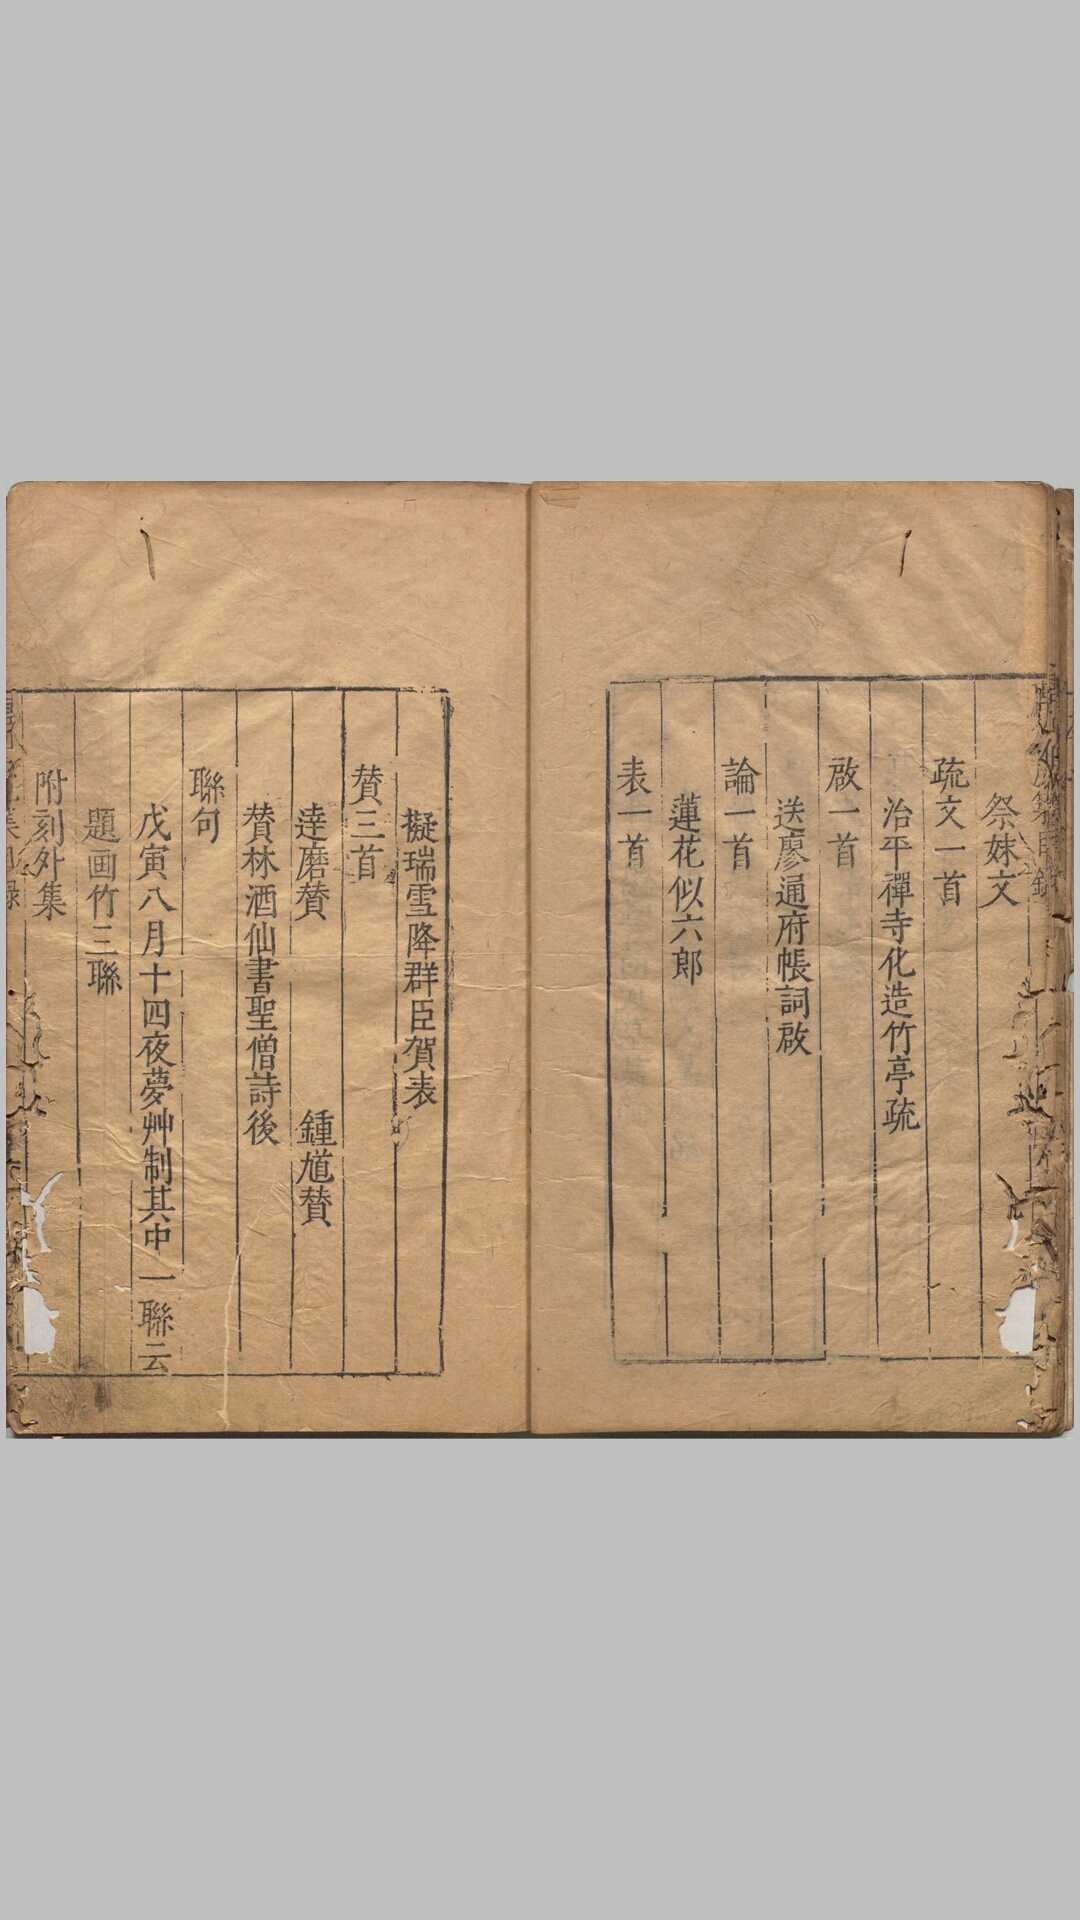 祭妹文
疏文一首
治平禪寺化造竹亭疏
啟一首
送廖通府帳詞啟
論一首
蓮花似六郎
表一首
擬瑞雪降群臣賀表
賛三首
達磨賛 鍾馗賛
賛林酒仙書聖僧詩後
聯句
戊寅八月十四夜夢艸制其中一聯云
題画竹三聯
附刻外集